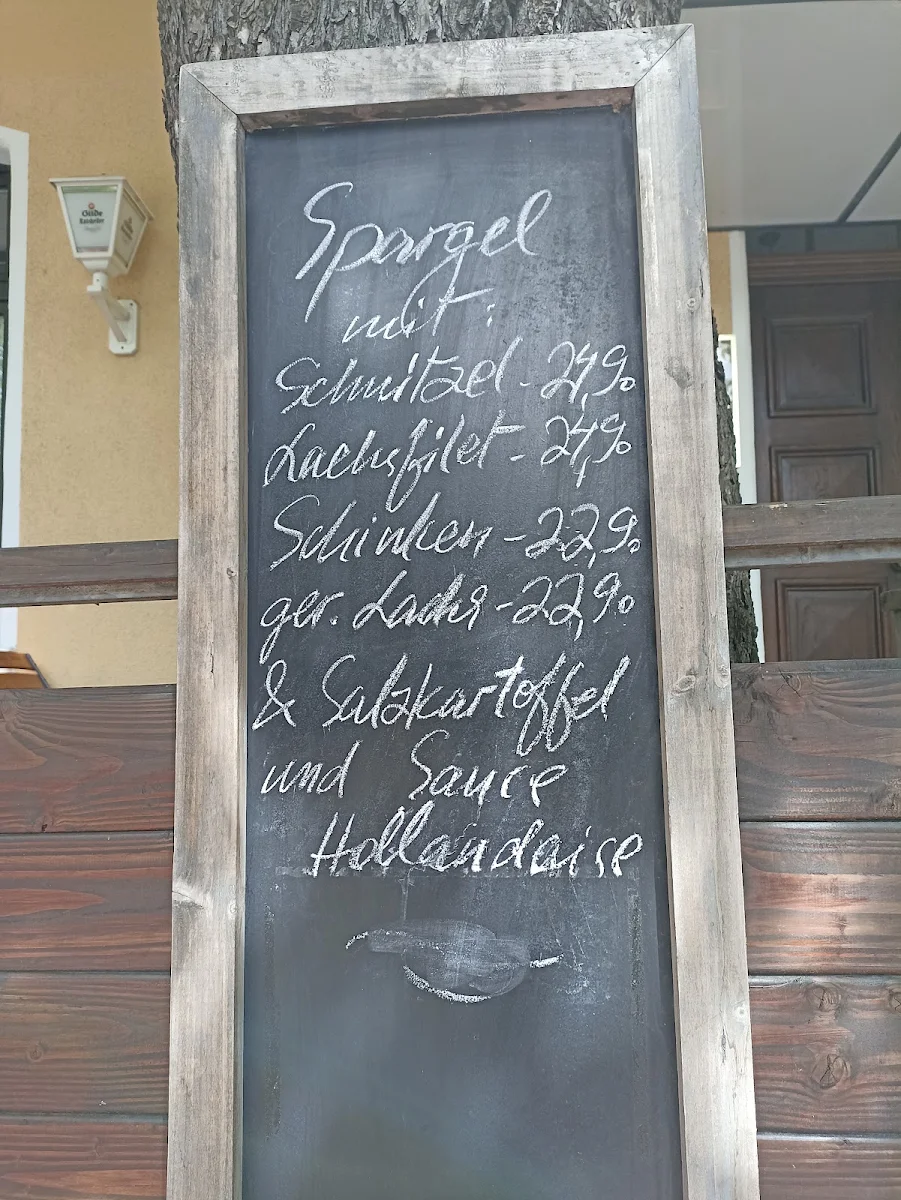 Gilde
Ratskeller
Spargel
mit :
Schnitzel - 24,90
Lachsfilet - 24,90
Schinken - 22,90
ger. Lachs - 22,90
& Salzkartoffel
und Sauce
Hollandaise